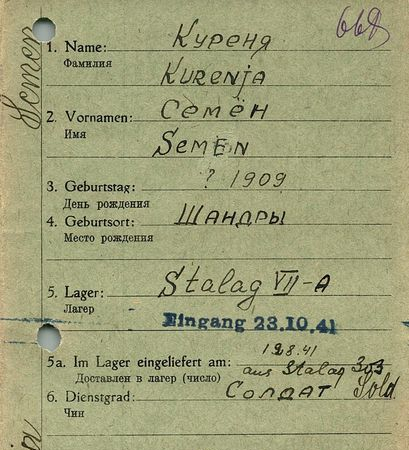 668
1. Name: Куреня
Фамилия
Kurenja
2. Vornamen: Семён
Имя
Semen
3. Geburtstag: ? 1909
День рождения
4. Geburtsort: Шандры
Место рождения
5. Lager: Stalag VII-A
Лагер
Eingang 23.10.41
5a. Im Lager eingeliefert am: 12.8.41
Доставлен в лагер (число) aus Stalag 303
6. Dienstgrad: Солдат Sold.
Чин
Semen